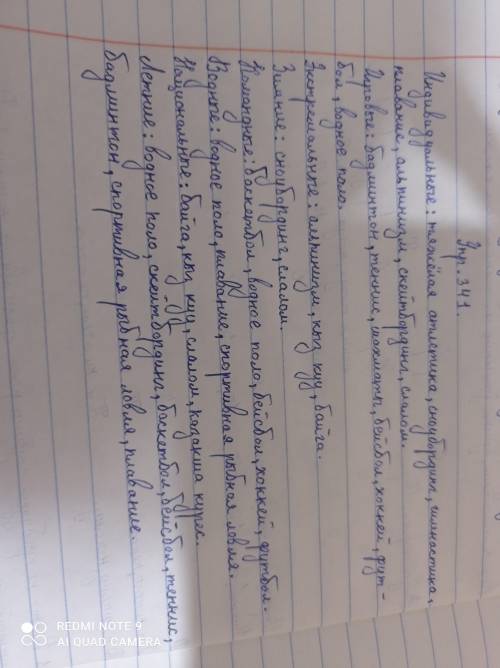 Упр. 341.
Индивидуальные: тяжёлая атлетика, сноубординг, гимнастика,
плавание, альпинизм, скейтбординг, слалом.
Игровые: бадминтон, теннис, шахматы, бейсбол, хоккей, фут-
бол, водное поло.
Экстремальные: альпинизм, кыз куу, байга.
Зимние: сноубординг, слалом.
Командные: баскетбол, водное поло, бейсбол, хоккей, футбол.
Водные: водное поло, плавание, спортивная рыбная ловля.
Национальные: байга, кыз куу, слалом, казакша курес.
Летние: водное поло, скейтбординг, баскетбол, бейсбол, теннис,
бадминтон, спортивная рыбная ловля, плавание.
REDMI NOTE 9
AI QUAD CAMERA